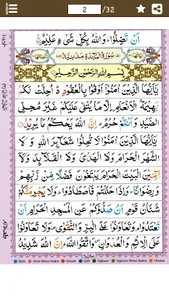 2 /32
اَنْ تَضِلُّوْا ؕ وَاللّٰهُ بِكُلِّ شَیْءٍ عَلِیْمٌ
سُوْرَةُ الْمَآئِدَةِ مَدَنِيَّةٌ
بِسْمِ اللّٰهِ الرَّحْمٰنِ الرَّحِیْمِ
یٰۤاَیُّهَا الَّذِیْنَ اٰمَنُوْۤا اَوْفُوْا بِالْعُقُوْدِ ؕ اُحِلَّتْ لَكُمْ
بَهِیْمَةُ الْاَنْعَامِ اِلَّا مَا یُتْلٰی عَلَیْكُمْ غَیْرَ مُحِلِّی
الصَّیْدِ وَاَنْتُمْ حُرُمٌ ؕ اِنَّ اللّٰهَ یَحْكُمُ مَا یُرِیْدُ
یٰۤاَیُّهَا الَّذِیْنَ اٰمَنُوْا لَا تُحِلُّوْا شَعَآئِرَ اللّٰهِ وَلَا
الشَّهْرَ الْحَرَامَ وَلَا الْهَدْیَ وَلَا الْقَلَآئِدَ وَلَاۤ
آٰمِّیْنَ الْبَیْتَ الْحَرَامَ یَبْتَغُوْنَ فَضْلًا مِّنْ رَّبِّهِمْ
وَرِضْوَانًا ؕ وَاِذَا حَلَلْتُمْ فَاصْطَادُوْا ؕ وَلَا یَجْرِمَنَّكُمْ
شَنَاٰنُ قَوْمٍ اَنْ صَدُّوْكُمْ عَنِ الْمَسْجِدِ الْحَرَامِ اَنْ
تَعْتَدُوْا ۘ وَتَعَاوَنُوْا عَلَی الْبِرِّ وَالتَّقْوٰی ۪ وَلَا تَعَاوَنُوْا
عَلَی الْاِثْمِ وَالْعُدْوَانِ ۪ وَاتَّقُوا اللّٰهَ ؕ اِنَّ اللّٰهَ شَدِیْدُ